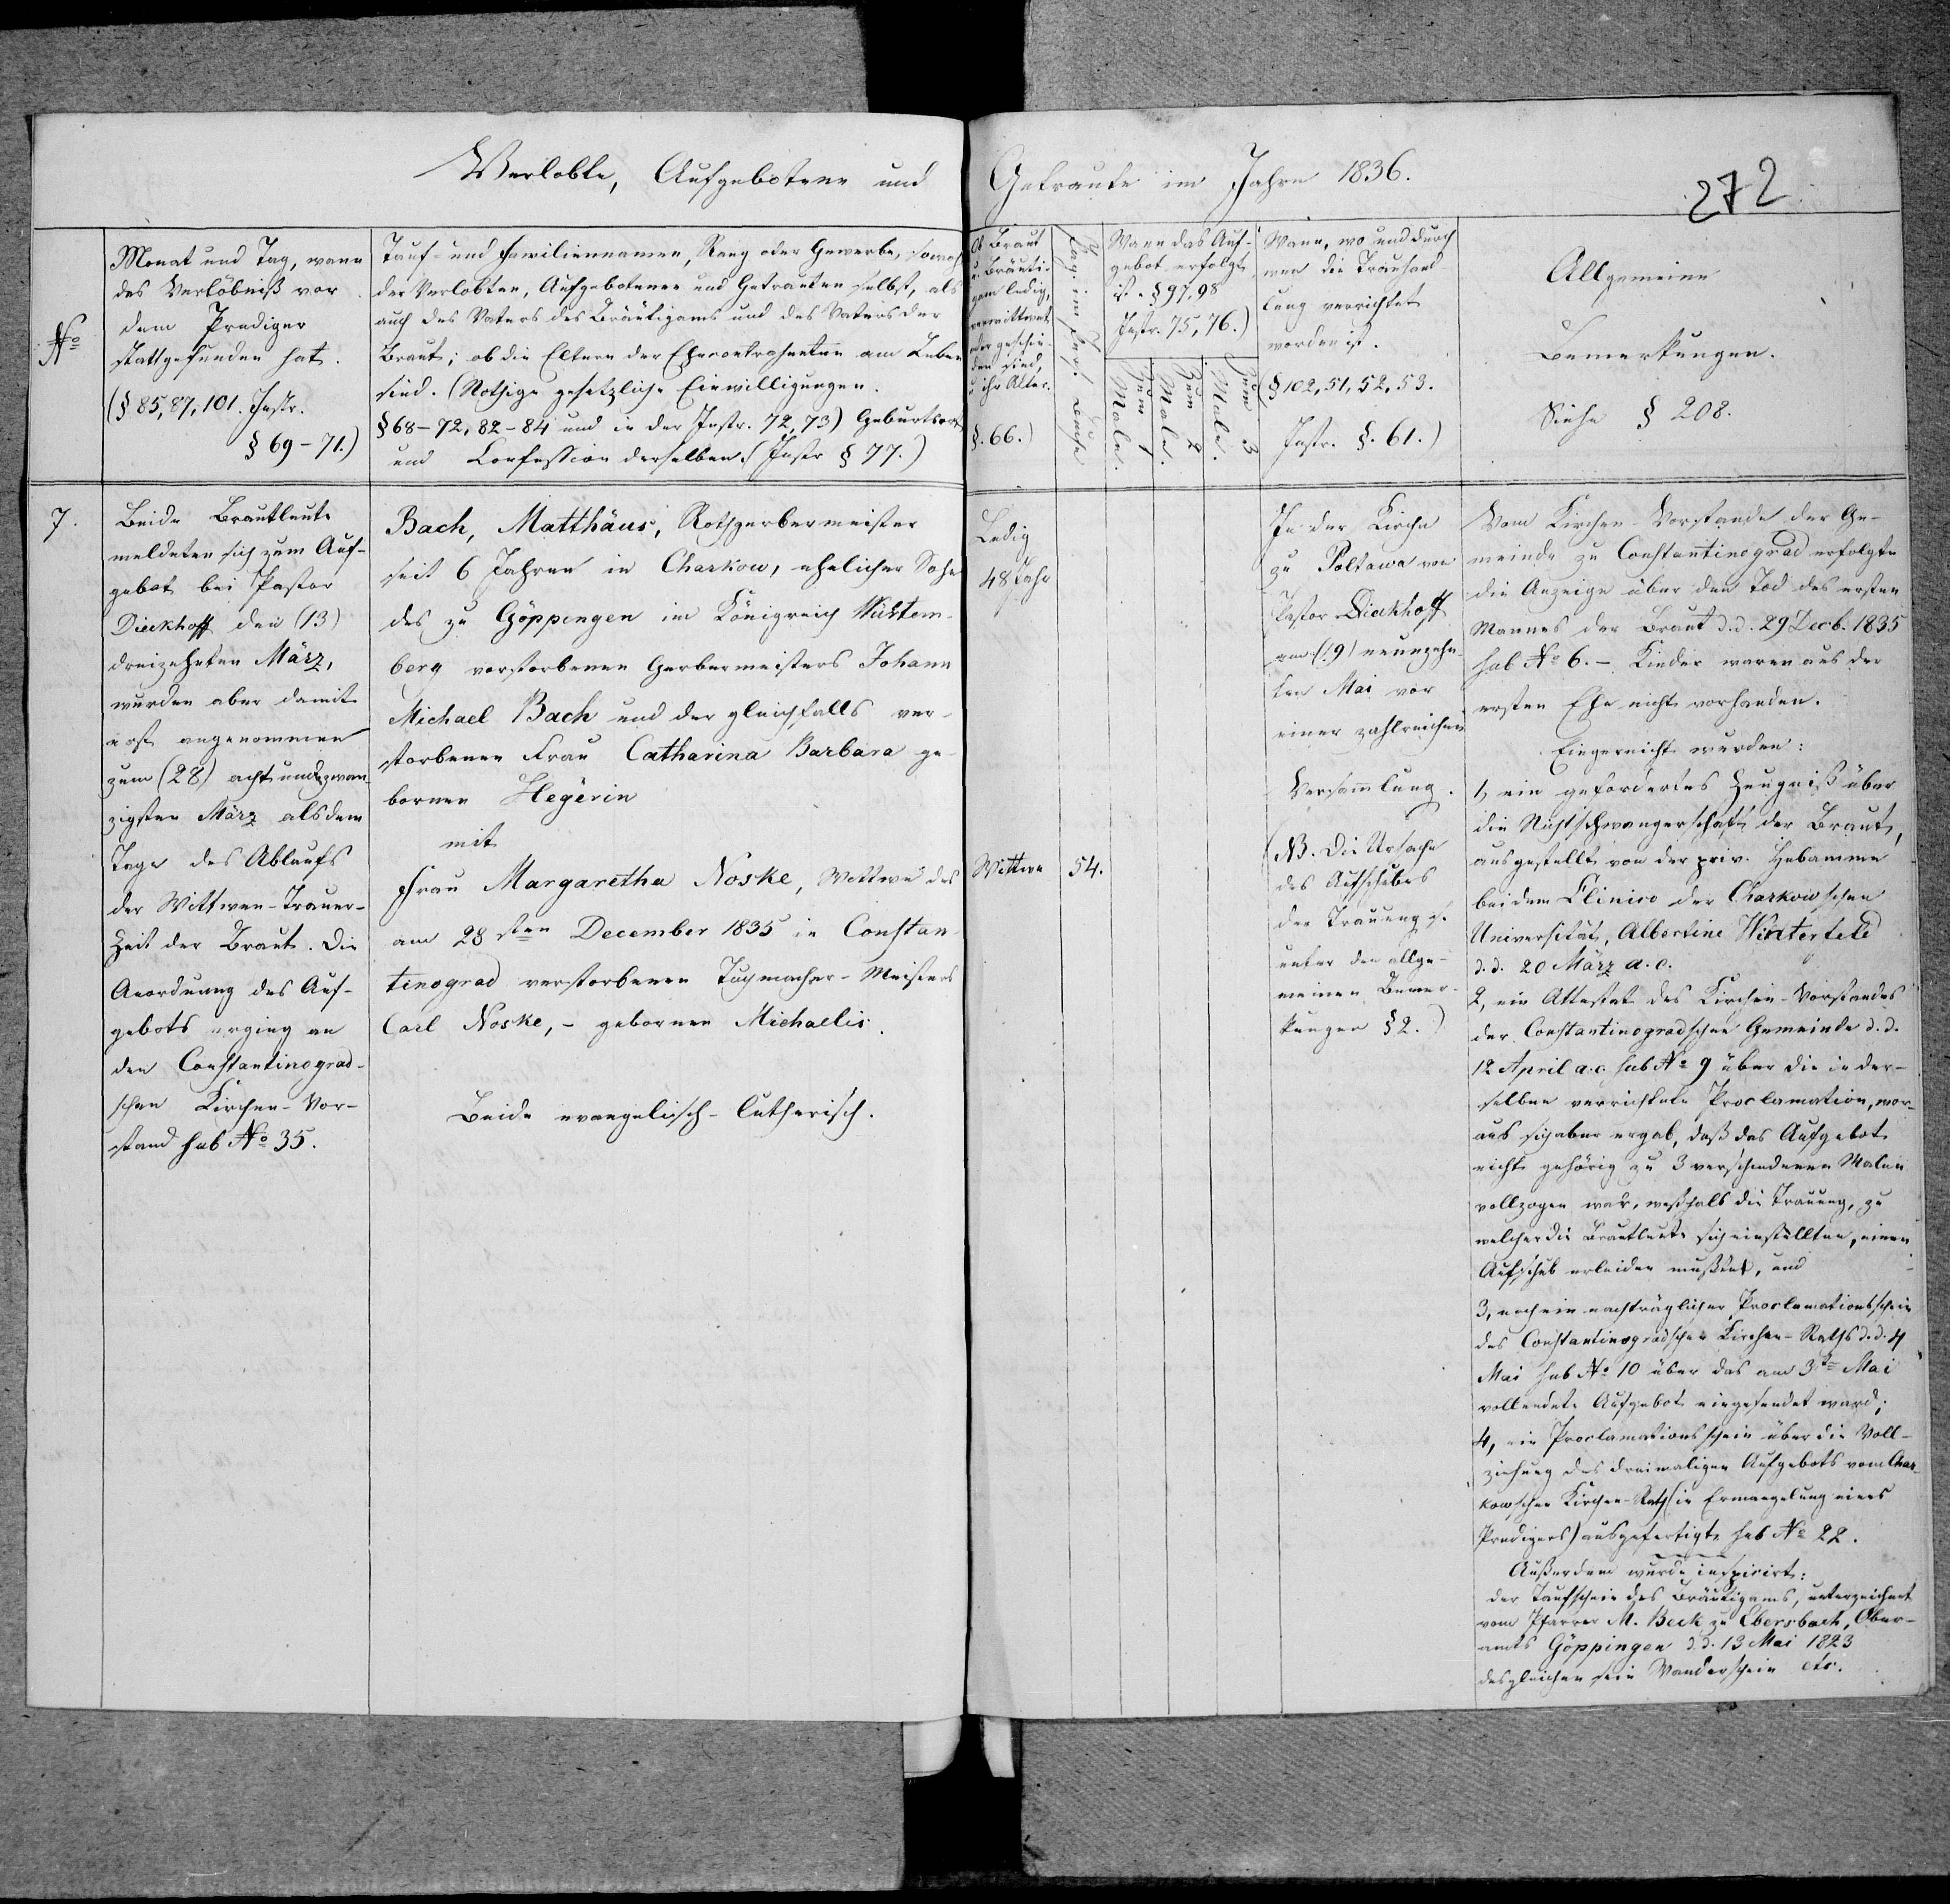 Verlobte, Aufgebotene und Getraute im Jahre 1836.
272
No
Monat und Tag, wann
das Verlöbniß vor
dem Prediger
stattgefunden hat.
(§ 85, 87, 101. Instr.
§ 69-71.)
Tauf- und Familiennamen, Rang oder Gewerbe, sowohl
der Verlobten, Aufgebotenen und Getrauten selbst, als
auch des Vaters des Bräutigams und des Vaters der
Braut; ob die Eltern der Ehecontrahenten am Leben
sind. (Nöthige gesetzliche Einwilligungen.
§ 68-72, 82-84 und in der Instr. 72, 73) Geburtsort
und Confession derselben. (Instr § 77.)
Ob Braut
u. Bräuti-
gam ledig,
verwittwet
oder geschie-
den sind,
u ihr Alter.
§. 66.)
Pag. im Pers. Buche
Wann das Auf-
gebot erfolgt
ist. § 97, 98
Instr. 75, 76.)
Zum 1
Male.
Zum 2
Male.
Zum 3
Male.
Wann, wo und durch
wen die Trauhand-
lung verrichtet
worden ist.
(§ 102, 51, 52, 53.
Instr. §. 61.)
Allgemeine
Bemerkungen.
Siehe § 208.
7.
Beide Brautleute
meldeten sich zum Auf-
gebot bei Pastor
Dieckhoff den (13)
dreizehnten März,
wurden aber damit
erst angenommen
zum (28) acht und zwan-
zigsten März als dem
Tage des Ablaufs
der Wittwen-Trauer-
Zeit der Braut. Die
Anordnung des Auf-
gebots erging an
den Constantinograd-
schen Kirchen-Vor-
stand sub No 35.
Bach, Matthäus, Rothgerbermeister
seit 6 Jahren in Charkow, ehelicher Sohn
des zu Göppingen im Königreich Würtem-
berg verstorbenen Gerbermeisters Johann
Michael Bach und der gleichfalls ver-
storbenen Frau Catharina Barbara ge-
bornen Hegerin
mit
Frau Margaretha Noske, Wittwe des
am 28sten December 1835 in Constan-
tinograd verstorbenen Tuchmacher-Meisters
Carl Noske, - gebornen Michaelis.
Beide evangelisch-lutherisch.
Ledig
48 Jahr
Wittwe
54.
In der Kirche
zu Poltawa von
Pastor Dieckhoff
am (19) neunzehn-
ten Mai vor
einer zahlreichen
Versammlung.
(NB. Die Ursache
des Aufschubes
der Trauung s.
unter den allge-
meinen Bemer-
kungen § 2.)
Vom Kirchen-Vorstande der Ge-
meinde zu Constantinograd erfolgte
die Anzeige über den Tod des ersten
Mannes der Braut d. d. 29 Decb. 1835
sub No 6. - Kinder waren aus der
ersten Ehe nicht vorhanden.
Eingereicht wurden:
1, ein gefordertes Zeugniß über
die Nichtschwangerschaft der Braut,
ausgestellt von der priv. Hebamme
bei dem Clinico der Charkowschen
Universität, Albertine Winterfeld
d. d. 20 März a. c.
2, ein Attestat des Kirchen-Vorstandes
der Constantinogradschen Gemeinde d. d.
12 April a. c. sub No 9 über die in der-
selben verrichtete Proclamation, wor-
aus sich aber ergab, daß das Aufgebot
nicht gehörig zu 3 verschiedenen Malen
vollzogen war, weßhalb die Trauung, zu
welcher die Brautleute sich einstellten, einen
Aufschub erleiden mußte, und
3, noch ein nachträglicher Proclamationsschein
des Constantinogradschen Kirchen-Raths d. d. 4
Mai sub No 10 über das am 3ten Mai
vollendete Aufgebot eingesendet ward;
4, ein Proclamationsschein über die Voll-
ziehung des dreimaligen Aufgebots vom Char-
kowschen Kirchen-Rath (in Ermangelung eines
Predigers) ausgefertigt sub No 22.
Außerdem wurde inspicirt:
der Taufschein des Bräutigams, unterzeichnet
vom Pfarrer M. Beck zu Ebersbach, Ober-
amts Göppingen d. d. 13 Mai 1823
desgleichen sein Wanderschein etc.